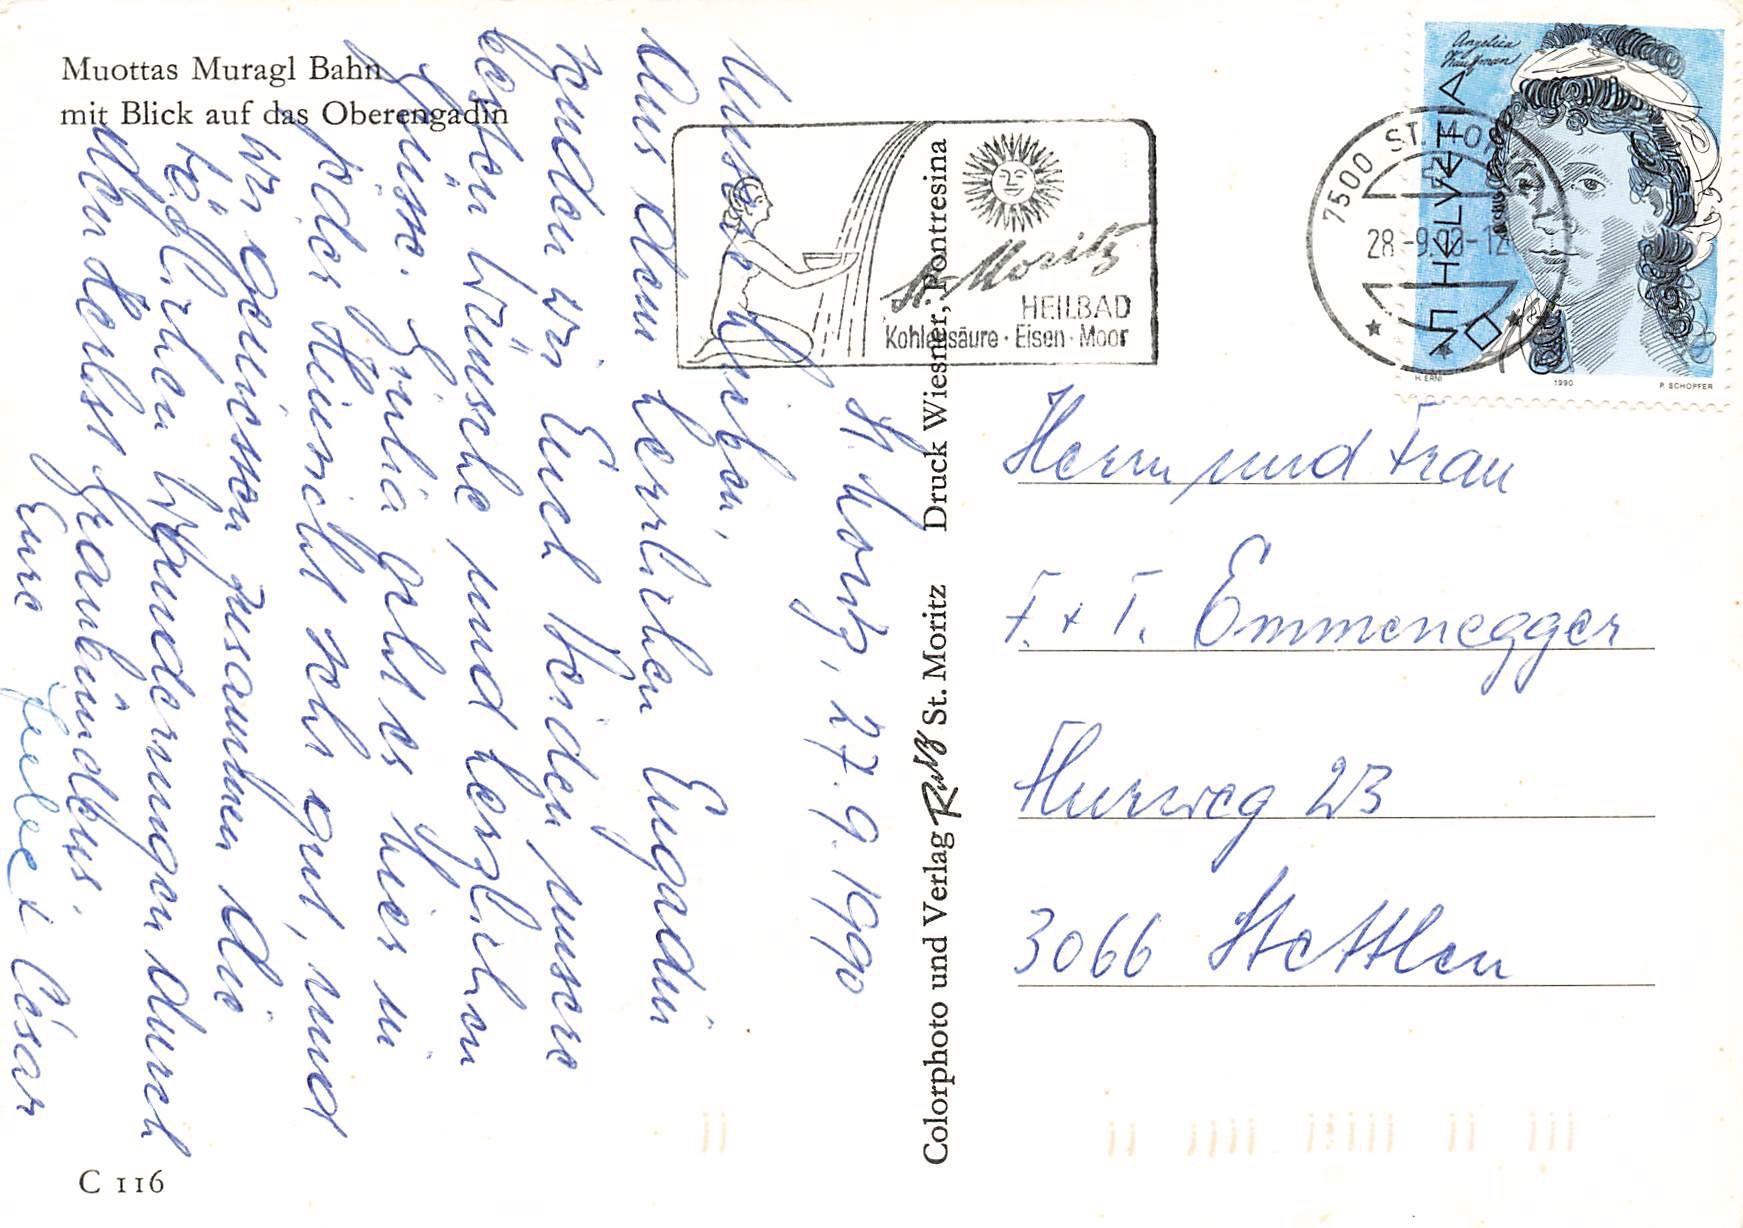 Muottas Muragl Bahn
mit Blick auf das Oberengadin
St. Moritz, 27.9.1990
Aus dem herrlichen Engadin
senden wir Euch beiden unsere
besten Wünsche und herzlichen
Grüsse. geht es hier in
jeder Hinsicht sehr gut, und
wir geniessen zusammen die
täglichen Wanderungen durch
den Herbst
Eure
+ César
C 116
Colorphoto und Verlag St. Moritz Druck Wiesner, Pontresina
St. Moritz
HEILBAD
Kohlensäure · Eisen · Moor
7500 ST. MO
28.-9.90-12
Angelica
Kauffmann
HELVETIA
50
H. ERNI 1990 P. SCHOPFER
Herrn und Frau
F. + T. Emmenegger
Flurweg 23
3066 Stettlen